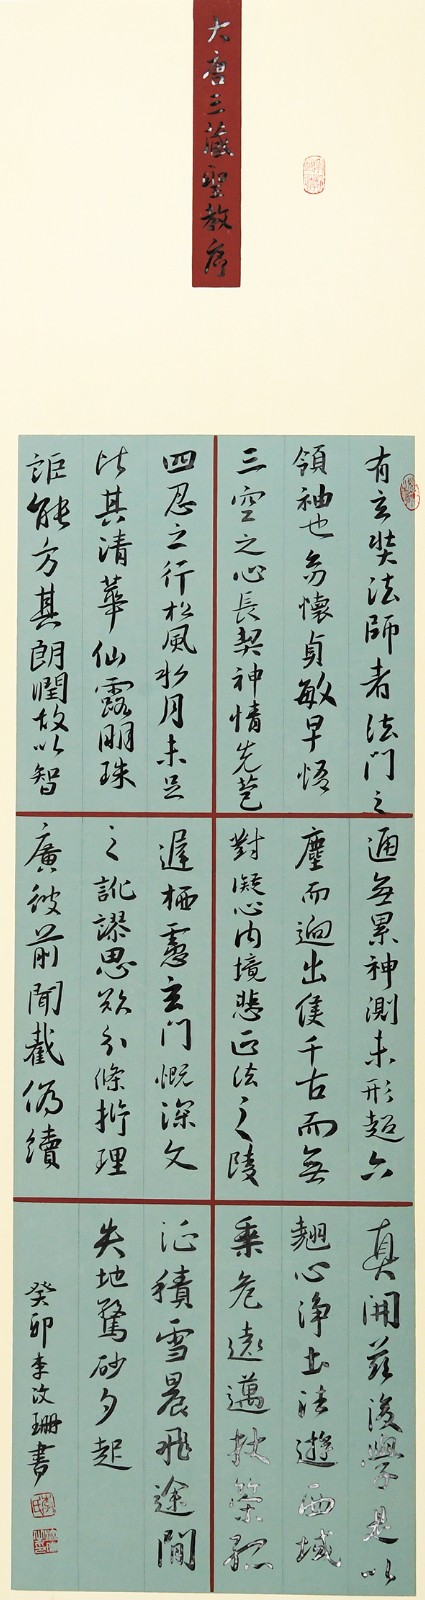 大唐三藏聖教序
有玄奘法師者法門之
領袖也幼懷貞敏早悟
三空之心長契神情先苞
四忍之行松風水月未足
比其清華仙露明珠
詎能方其朗潤故以智
通無累神測未形超六
塵而迥出隻千古而無
對凝心內境悲正法之陵
遲栖慮玄門慨深文
之訛謬思欲分條析理
廣彼前聞截偽續
真開茲後學是以
翹心淨土往遊西域
乘危遠邁杖策孤
征積雪晨飛途間
失地驚砂夕起
癸卯李汶珊書